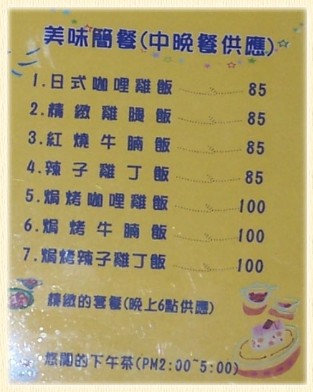 美味簡餐(中晚餐供應)
1.日式咖哩雞飯 85
2.精緻雞腿飯 85
3.紅燒牛腩飯 85
4.辣子雞丁飯 85
5.焗烤咖哩雞飯 100
6.焗烤牛腩飯 100
7.焗烤辣子雞丁飯 100
精緻的套餐(晚上6點供應)
悠閒的下午茶(PM2:00~5:00)